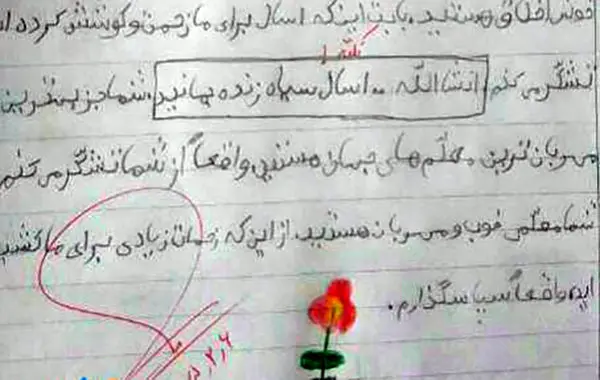 خوش اخلاق هستید. بابت اینکه امسال برای ما زحمت و کوشش کرده اید
تشکر می کنم. انشاالله ۱۰۰ سال سیاه زنده بمانید. شما جز بهترین
مهربان ترین معلم های جهان هستید. واقعاً از شما تشکر می کنم
شما معلمی خوب و مهربان هستید. از این که زحمات زیادی برای ما کشید
اید واقعاً سپاسگذارم.